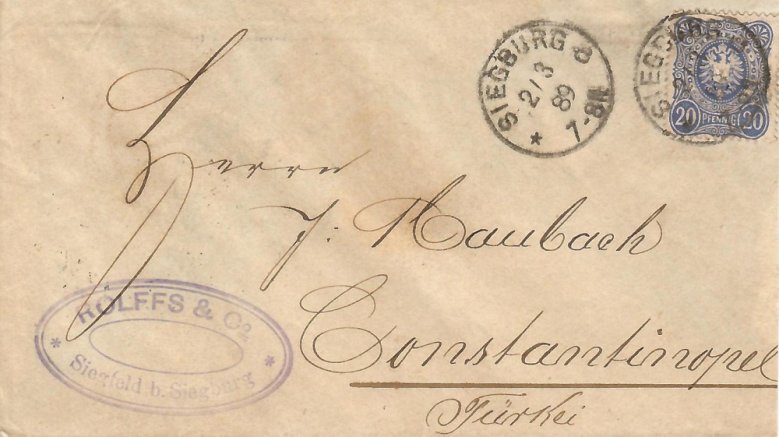 SIEGBURG
2/3
89
7-8N
SIEGBURG
20 PFENNIG 20
Herrn
J. Maubach
Constantinopel
Türkei
ROLFFS & Co
Siegfeld b. Siegburg